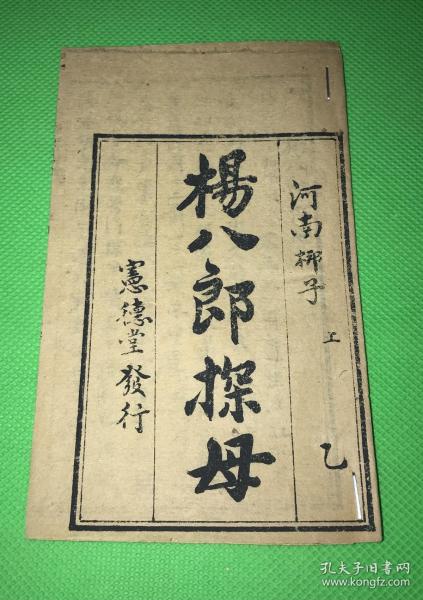 河南梆子
上
乙
楊八郎探母
憲德堂發行
孔夫子旧书网
www.kongfz.com